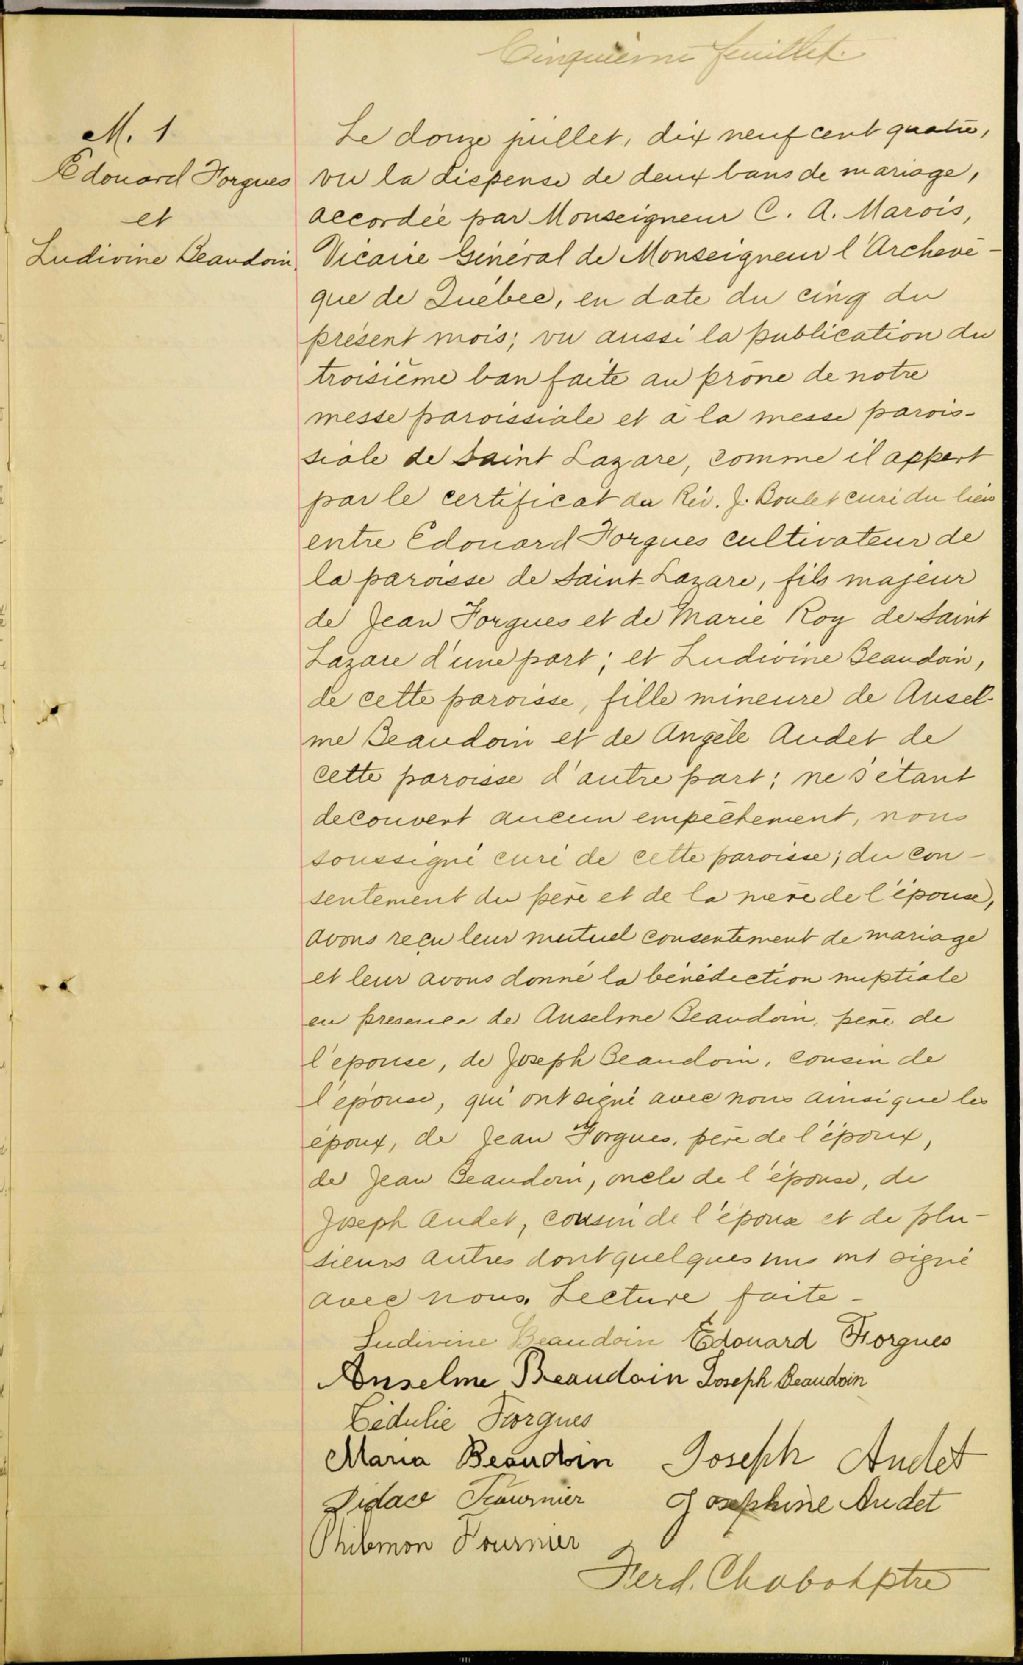 Cinquième feuillet.
M. 1
Edouard Forgues
et
Ludivine Beaudoin.
Le douze juillet, dix neuf cent quatre,
vu la dispense de deux bans de mariage,
accordée par Monseigneur C. A. Marois,
Vicaire Général de Monseigneur l'Archevê-
que de Québec, en date du cinq du
présent mois; vu aussi la publication du
troisième ban faite au prône de notre
messe paroissiale et à la messe parois-
siale de Saint Lazare, comme il appert
par le certificat du Rév. J. Boulet curé du lieu
entre Edouard Forgues cultivateur de
la paroisse de Saint-Lazare, fils majeur
de Jean Forgues et de Marie Roy de Saint
Lazare d'une part; et Ludivine Beaudoin,
de cette paroisse, fille mineure de Ansel-
me Beaudoin et de Angèle Audet de
cette paroisse d'autre part; ne s'étant
decouvert aucun empêchement, nous
soussigné curé de cette paroisse; du con-
sentement du père et de la mère de l'épouse,
avons reçu leur mutuel consentement de mariage
et leur avons donné la bénédiction nuptiale
en presence de Anselme Beaudoin, père de
l'epouse, de Joseph Beaudoin, cousin de
l'épouse, qui ont signé avec nous ainsi que les
époux, de Jean Forgues, père de l'époux,
de Jean Beaudoin, oncle de l'épouse, de
Joseph Audet, cousin de l'époux et de plu-
sieurs autres dont quelques uns ont signé
avec nous. Lecture faite -
Ludivine Beaudoin Edouard Forgues
Anselme Beaudoin Joseph Beaudoin
Cédulie Forgues
Maria Beaudoin Joseph Audet
Didace Fournier Josephine Audet
Philemon Fournier
Ferd. Chabot ptre